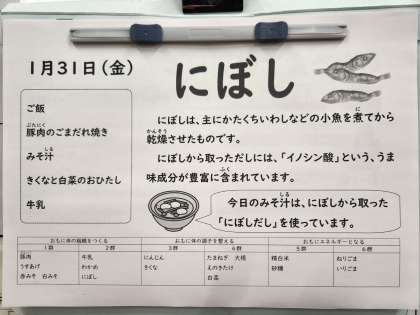 1月31日(金)
にぼし
ご飯
ぶたにく
豚肉のごまだれ焼き
しる
みそ汁
きくなと白菜のおひたし
牛乳
に
にぼしは、主にかたくちいわしなどの小魚を煮てから
かんそう
乾燥させたものです。
にぼしから取っただしには、「イノシン酸」という、うま
ふく
味成分が豊富に含まれています。
しる
今日のみそ汁は、にぼしから取った
「にぼしだし」を使っています。
おもに体の組織をつくる おもに体の調子を整える おもにエネルギーとなる
1群 2群 3群 4群 5群 6群
豚肉 牛乳 にんじん たまねぎ 大根 精白米 ねりごま
うすあげ わかめ きくな えのきたけ 砂糖 いりごま
赤みそ 白みそ にぼし 白菜